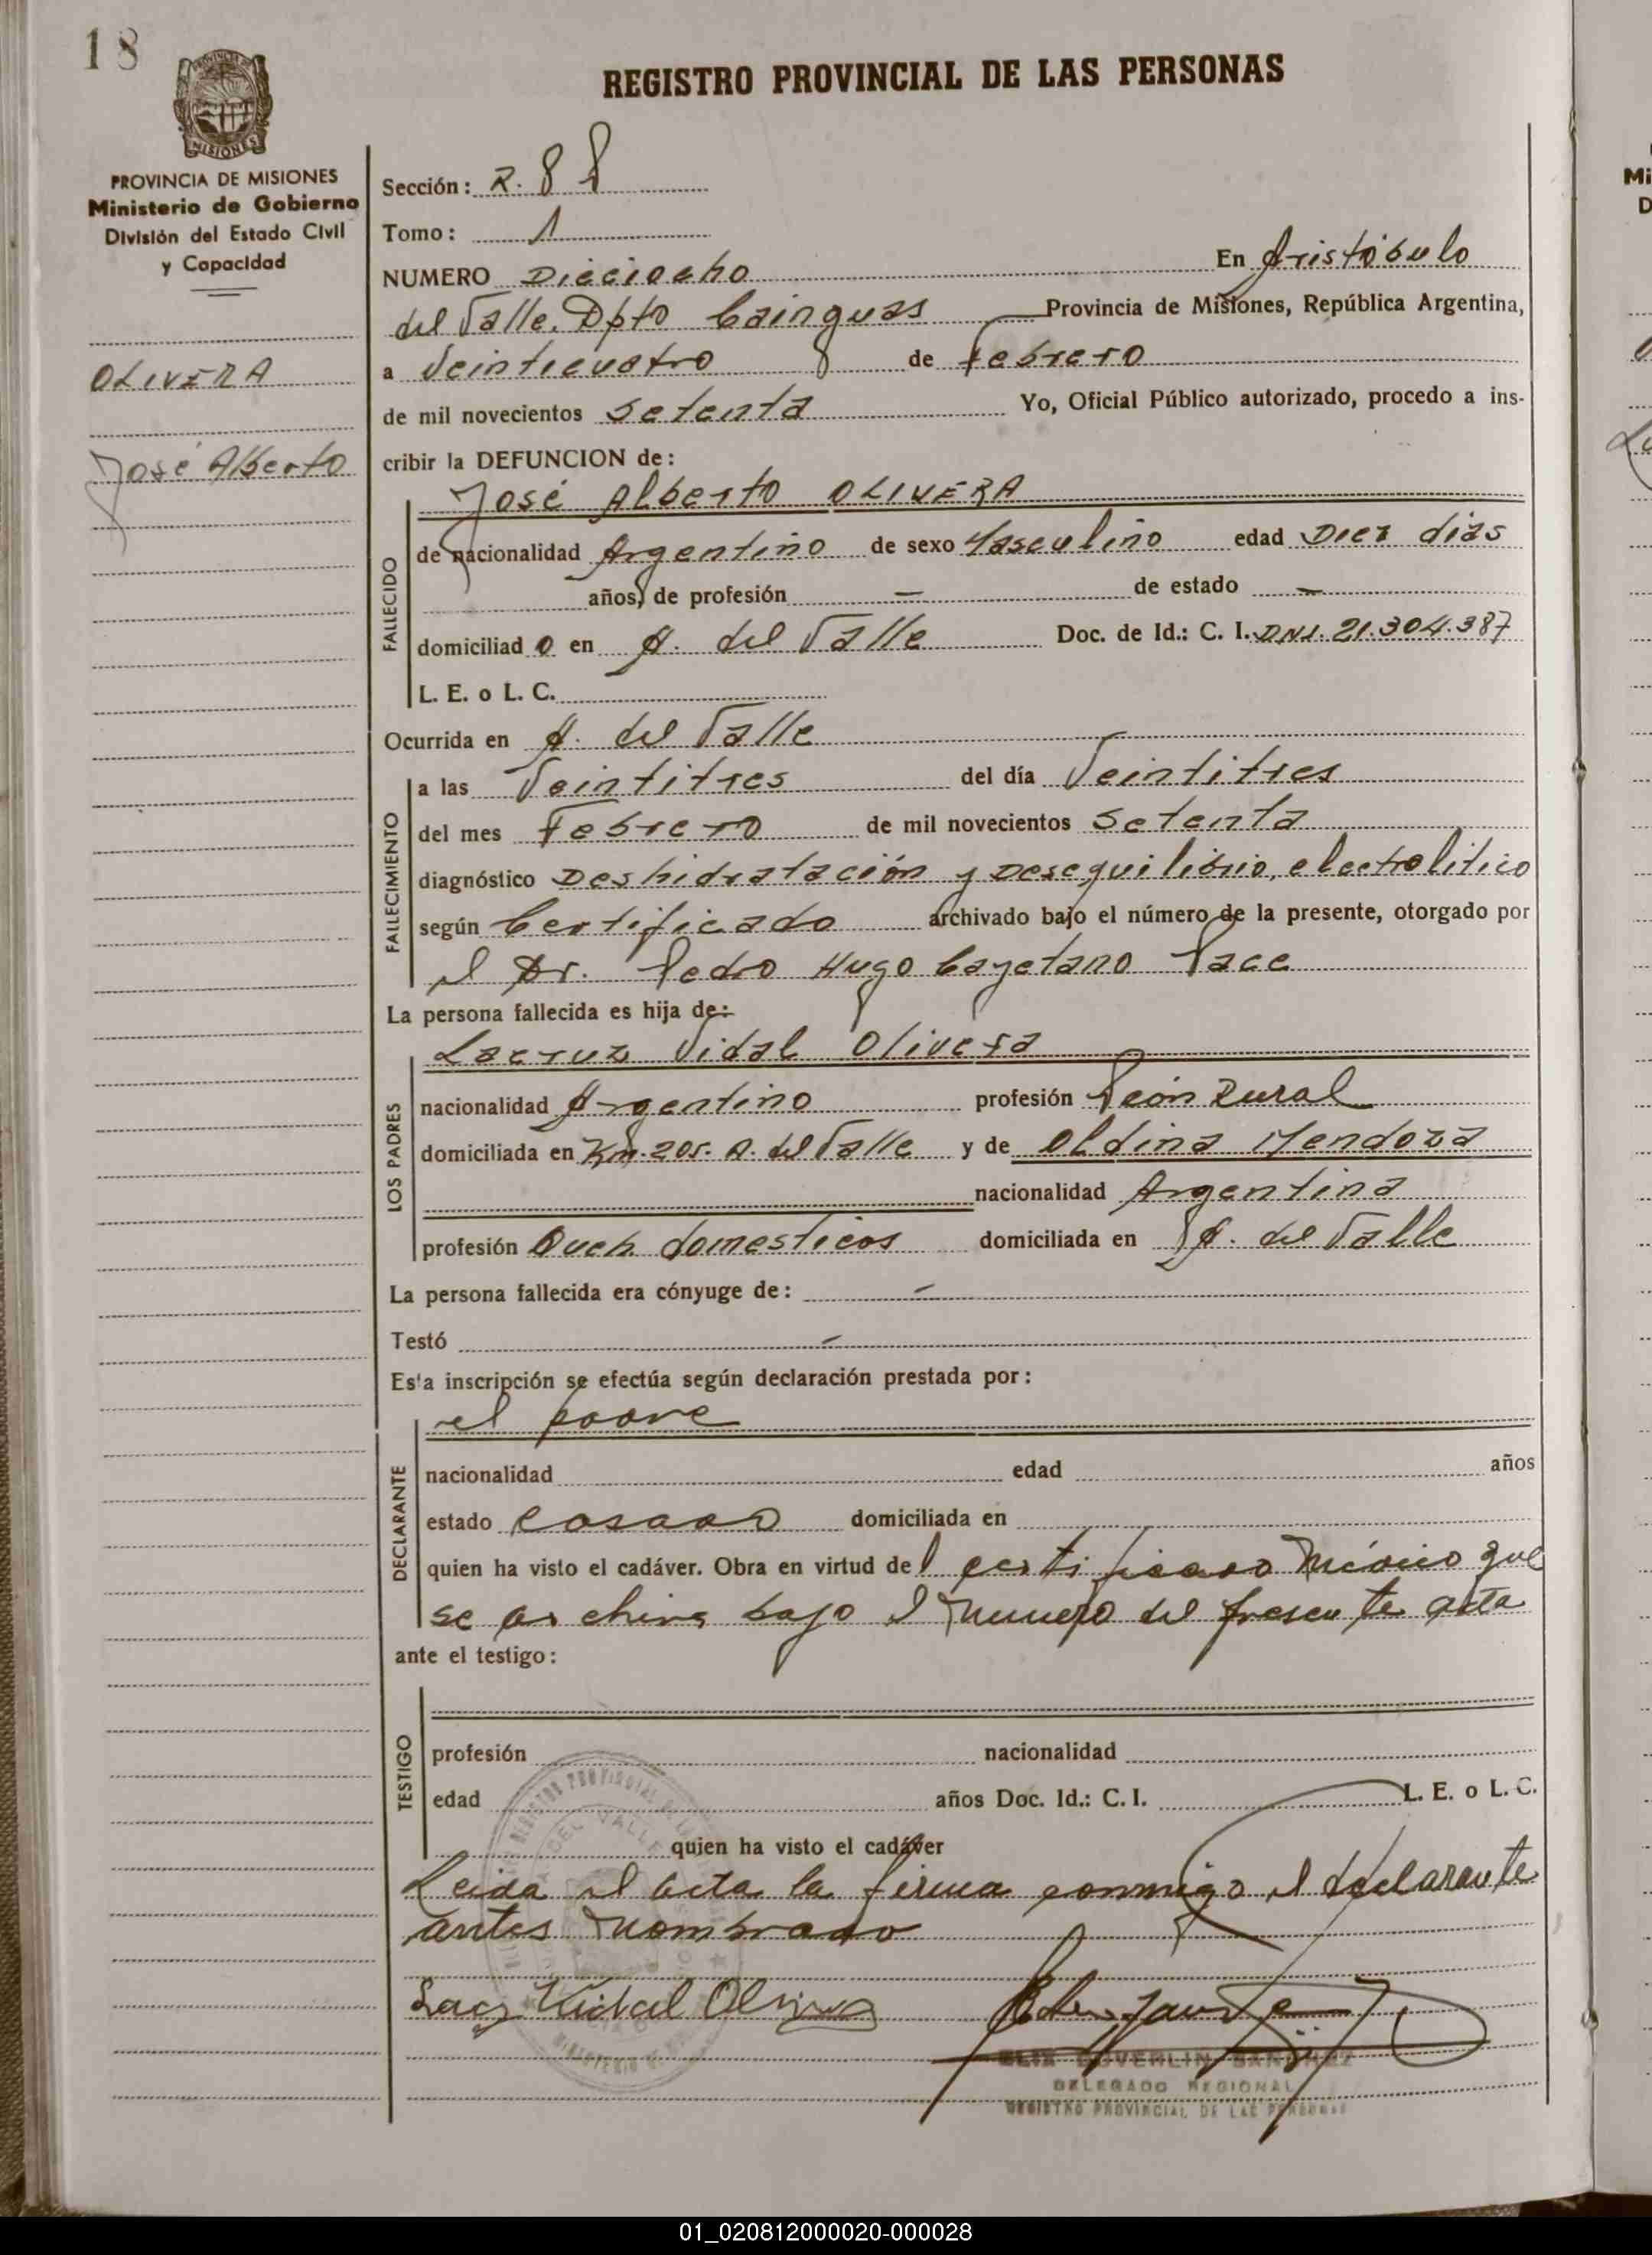 18
REGISTRO PROVINCIAL DE LAS PERSONAS
MISIONES
PROVINCIA DE MISIONES
Ministerio de Gobierno
División del Estado Civil
y Capacidad
OLIVERA
José Alberto
Sección: R. 8
Tomo: 1
NUMERO Dieciocho En Aristóbulo
del Valle. Dpto Cainguas Provincia de Misiones, República Argentina,
a Veinticuatro de Febrero
de mil novecientos Setenta Yo, Oficial Público autorizado, procedo a ins-
cribir la DEFUNCION de:
FALLECIDO
José Alberto OLIVERA
de nacionalidad Argentino de sexo Masculino edad Diez días
años, de profesión — de estado —
domiciliado en A. del Valle Doc. de Id.: C. I. DNI. 21.304.387
L. E. o L. C.
Ocurrida en A. del Valle
FALLECIMIENTO
a las Veintitres del día Veintitres
del mes Febrero de mil novecientos Setenta
diagnóstico Deshidratación y Desequilibrio, electrolitico
según Certificado archivado bajo el número de la presente, otorgado por
el Dr. Pedro Hugo Cayetano Pace
La persona fallecida es hija de:
LOS PADRES
Lacruz Vidal Olivera
nacionalidad Argentino profesión Peón Rural
domiciliada en Km. 205. A. del Valle y de Oldina Mendoza
nacionalidad Argentina
profesión Queh. domesticos domiciliada en A. del Valle
La persona fallecida era cónyuge de: —
Testó —
Esta inscripción se efectúa según declaración prestada por:
DECLARANTE
el padre
nacionalidad edad años
estado casado domiciliada en
quien ha visto el cadáver. Obra en virtud del certificado médico que
se archiva bajo el numero del presente acta
ante el testigo:
TESTIGO
profesión nacionalidad
edad años Doc. Id.: C. I. L. E. o L. C.
quien ha visto el cadáver
Leida el acta la firma conmigo el declarante
antes nombrado
Vidal Olivera
DELEGADO REGIONAL
REGISTRO PROVINCIAL DE LAS PERSONAS
01_020812000020-000028